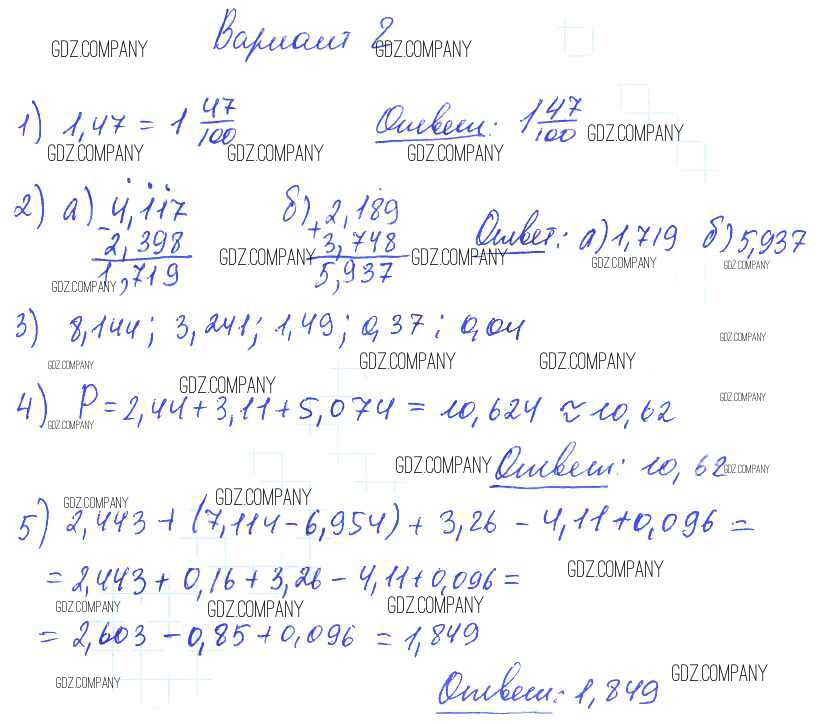 Вариант 2
GDZ.COMPANY GDZ.COMPANY
1) 1,47 = 1 47/100 Ответ: 1 47/100 GDZ.COMPANY
GDZ.COMPANY GDZ.COMPANY GDZ.COMPANY
2) а) 4,117 б) 2,189
- 2,398 + 3,748 Ответ: а) 1,719 б) 5,937
GDZ.COMPANY GDZ.COMPANY GDZ.COMPANY GDZ.COMPANY
1,719 5,937
GDZ.COMPANY
3) 8,144; 3,241; 1,49; 0,37; 0,04
GDZ.COMPANY
GDZ.COMPANY GDZ.COMPANY GDZ.COMPANY
GDZ.COMPANY GDZ.COMPANY
4) P = 2,44 + 3,11 + 5,074 = 10,624 ≈ 10,62
GDZ.COMPANY
GDZ.COMPANY Ответ: 10,62 GDZ.COMPANY
GDZ.COMPANY GDZ.COMPANY
5) 2,443 + (7,114 - 6,954) + 3,26 - 4,11 + 0,096 =
= 2,443 + 0,16 + 3,26 - 4,11 + 0,096 = GDZ.COMPANY
GDZ.COMPANY GDZ.COMPANY GDZ.COMPANY
= 2,603 - 0,85 + 0,096 = 1,849
GDZ.COMPANY GDZ.COMPANY
Ответ: 1,849